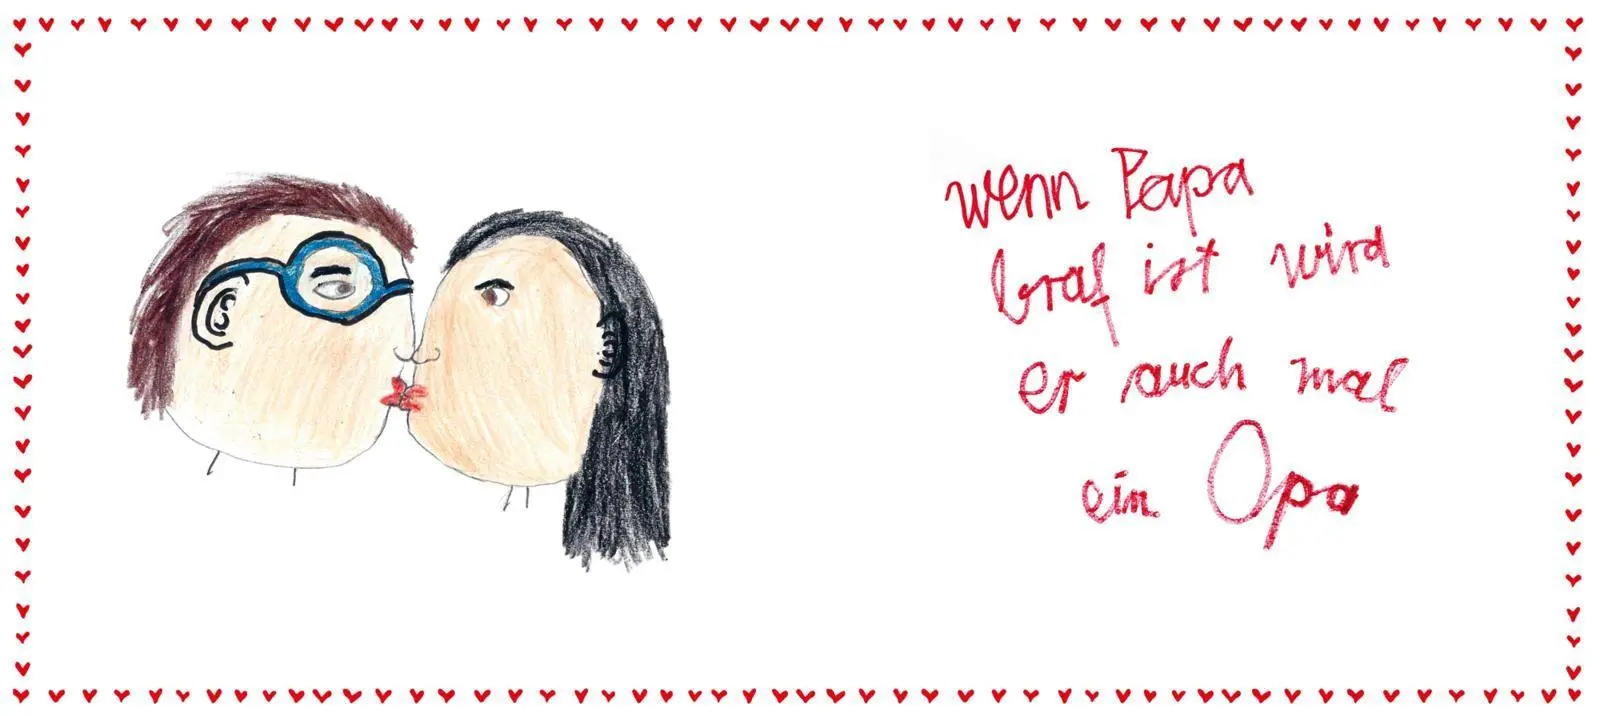 wenn Papa
braf ist wird
er auch mal
ein Opa